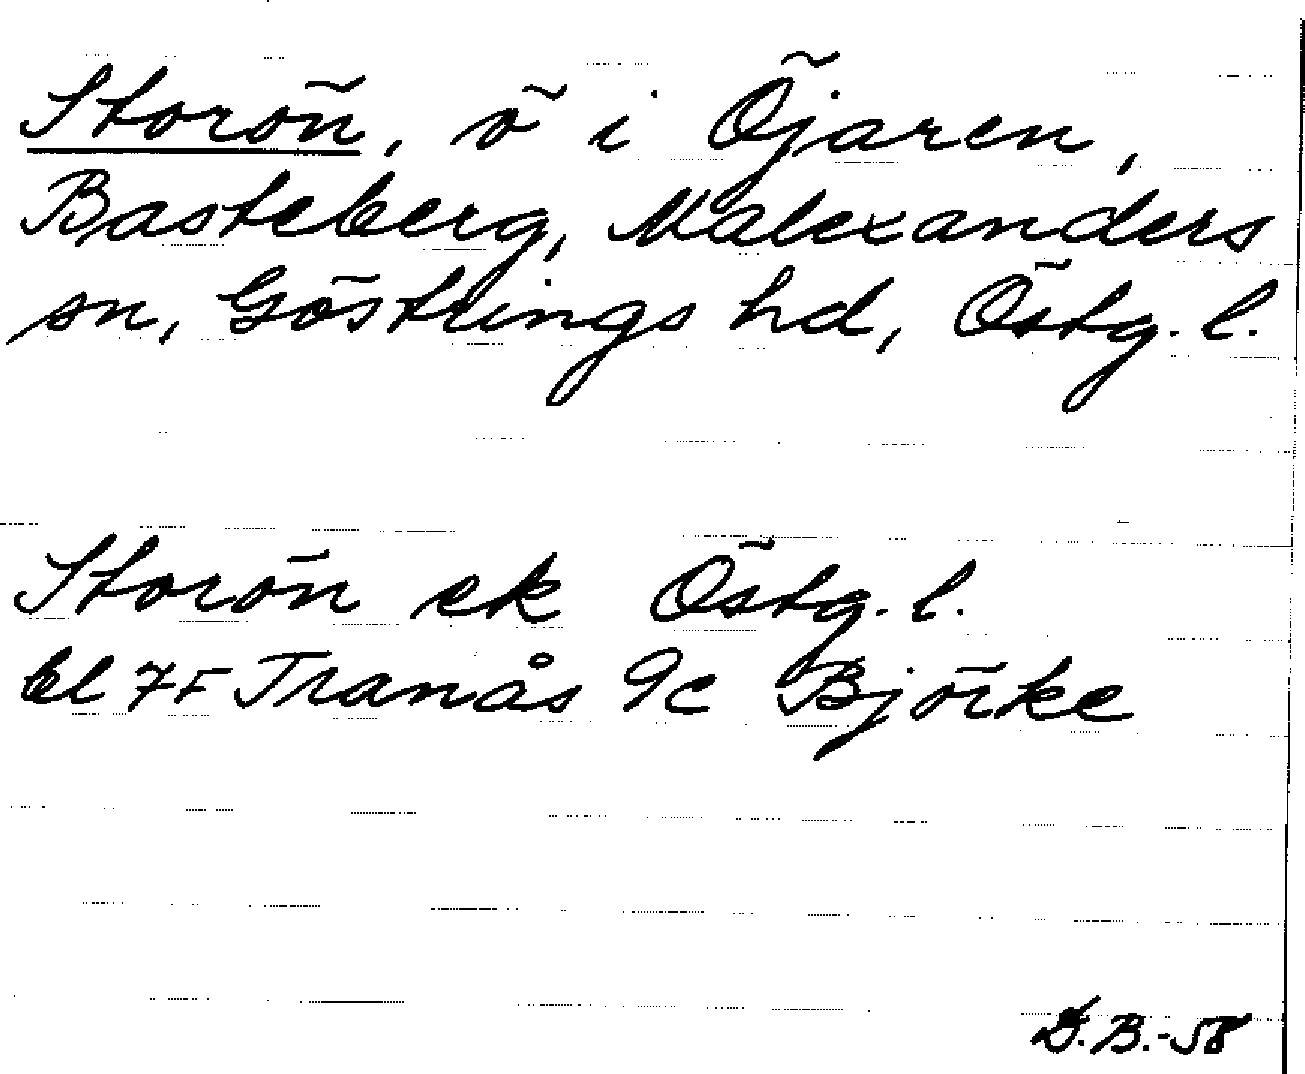 Storön, ö i Öjaren,
Basteberg, Malexanders
sn, Göstrings hd, Östg. l.
Storön ek Östg. l.
bl 7F Tranås 9c Björke
D.B.-58